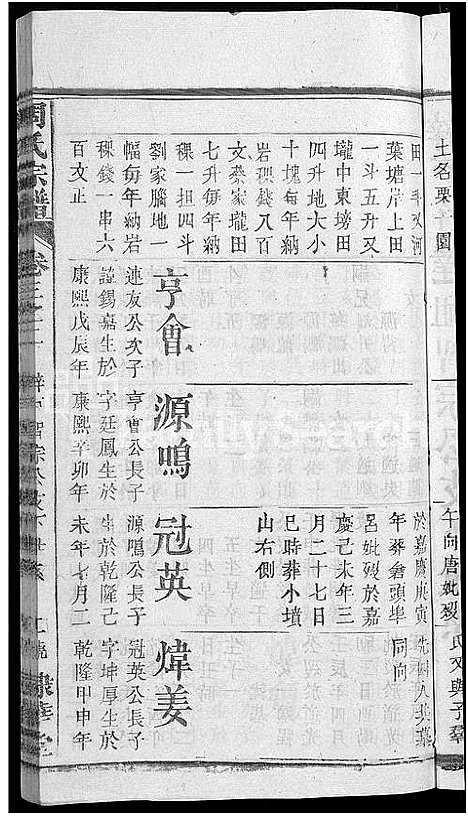 土名栗
園
午向唐妣歿
田一斗又河
葉塘岸上田
一斗五升又
壠中東塝田
四升地大小
十塊每年納
岩硔錢八百
文齋家壠田
七升每年納
稞一担四斗
劉家腦地一
幅每年納岩
稞錢一串六
百文正
於嘉慶庚寅
年葬倉頭埠
呂妣歿於嘉
慶己未年三
月二十七日
巳時葬小墳
山右側
同向
亨會
連友公次子
謹錫嘉生於
康熙戊辰年
源鳴
亨會公長子
字廷鳳生於
康熙辛卯年
冠英
源鳴公長子
生於乾隆己
未年七月二
煒姜
冠英公長子
字坤厚生於
乾隆甲申年
周氏宗譜
卷三之二